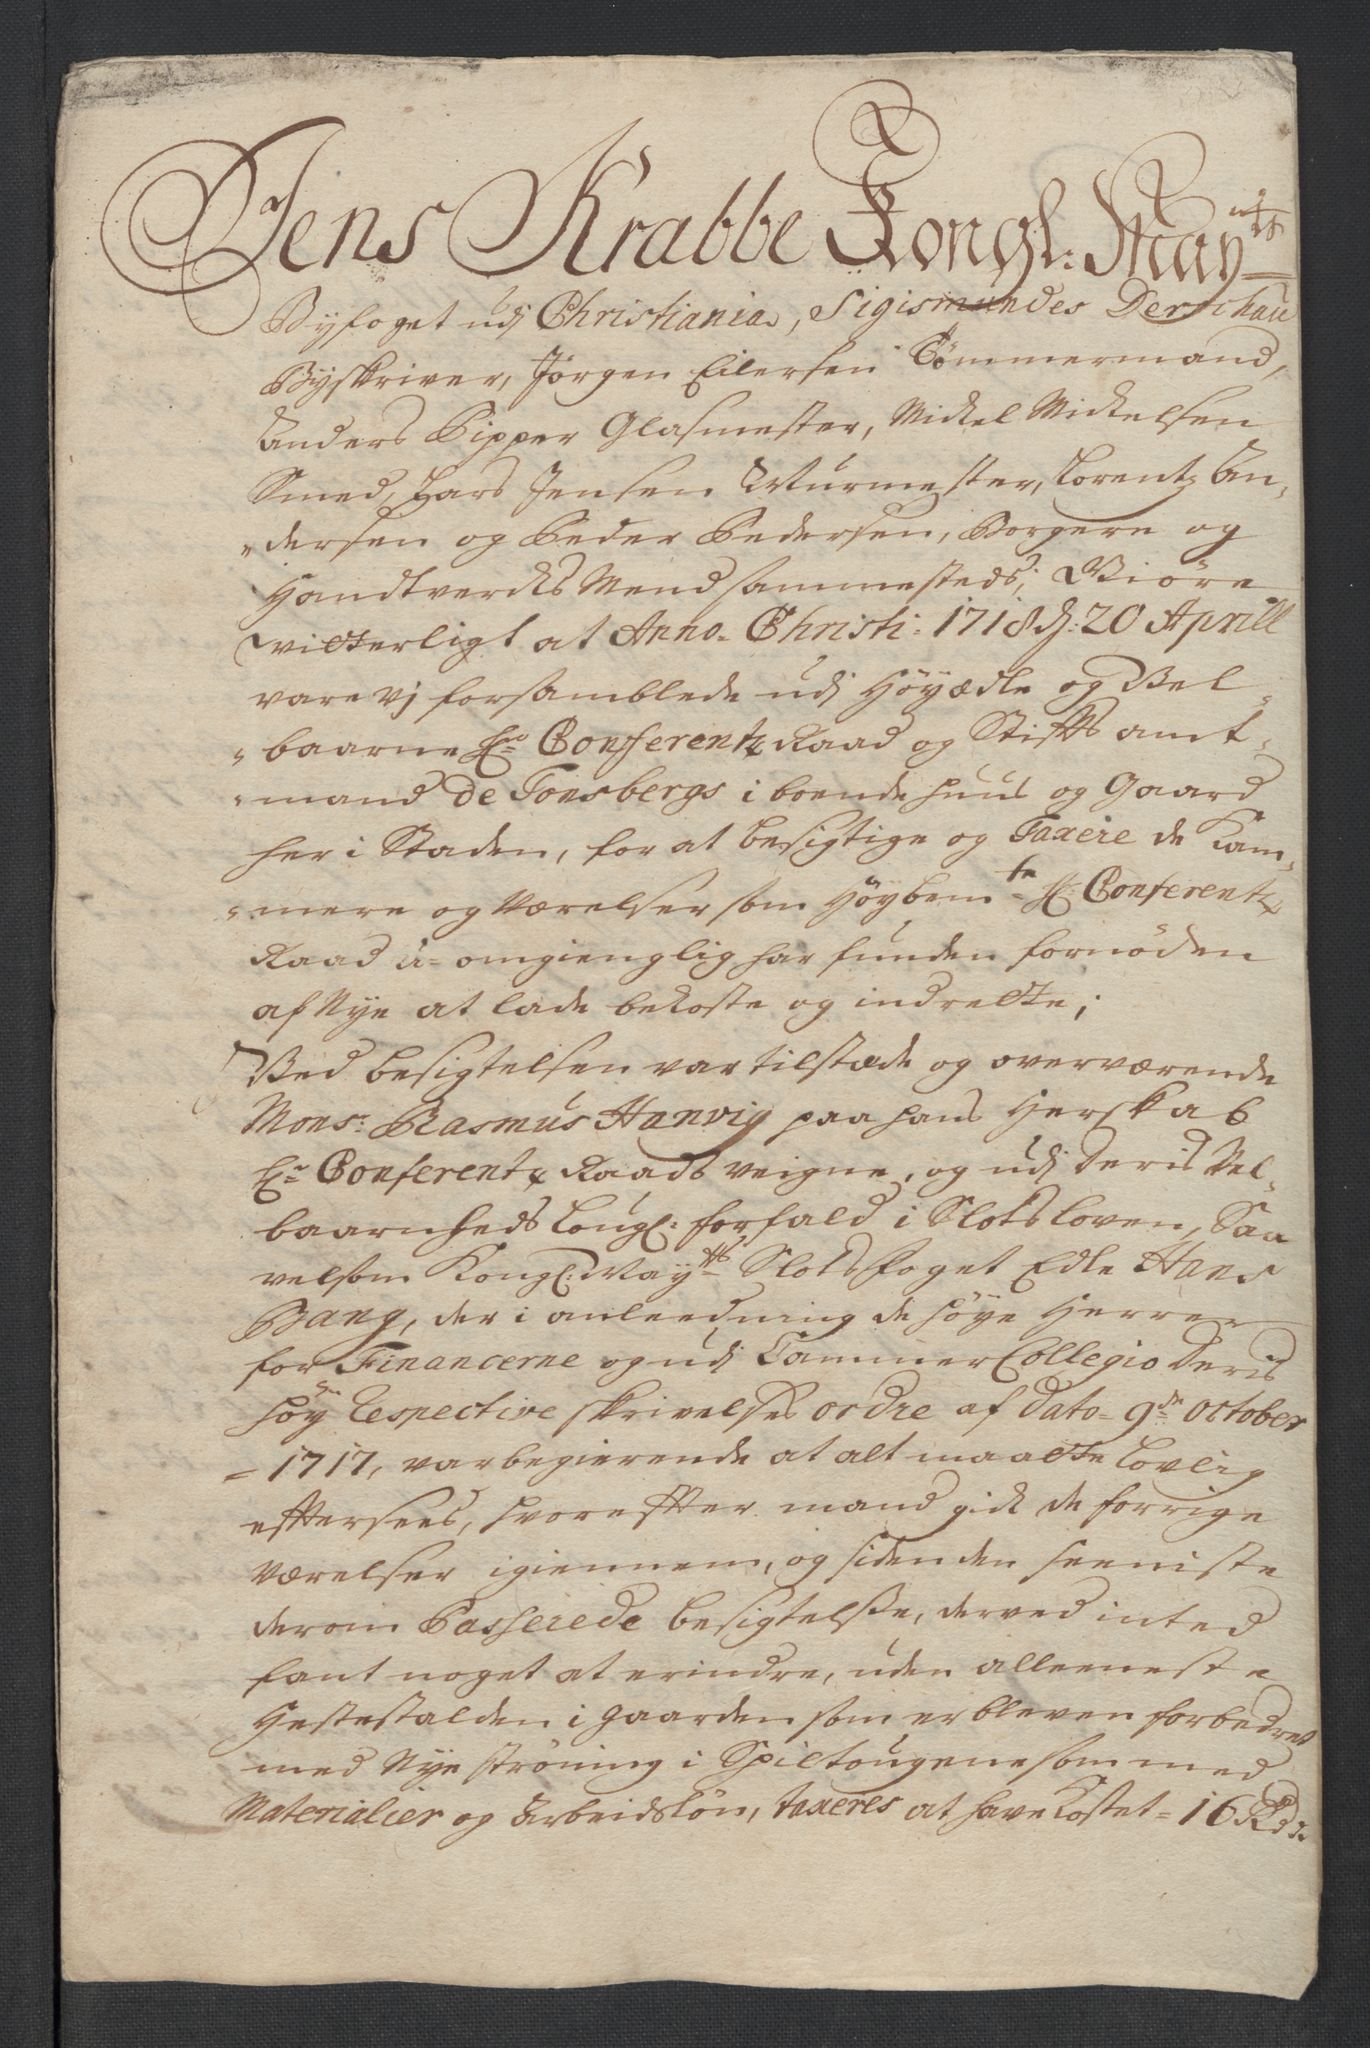 Jens Krabbe Kongl: May.tts
Byfoget udj Christiania, Sigismundes Derschau
Byskriver, Jørgen Eilersen Tømmermand,
Anders Pipper Glasmester, Mickel Mickelsen
Smed, Lars Jensen Muurmester, Lorentz An,,
,,dersen og Peder Pedersen, Borgere og
Handtvercks Mend sammesteds, Giøre
vitterligt at Anno Christi 1718 d: 20 Aprill
vare vj forsamblede udj Høyædle og Vel,,
,,baarne Hr Conferentz Raad og Stifts amt,,
,,mand de Tonsbergs iboende Huus og Gaard
her i Staden, for at besigtige og Taxere de Kam,,
,,mere og Værelser som Høybemte Hr Conferentz
Raad u-omgienglig har funden fornøden
af Nye at lade bekoste og indrette;
Ved besigtelsen var tilstæde og overværende
Monsr: Rasmus Hanvig paa hans Herskab
Hr Conferentz Raads veigne, og udj Deris Vel,,
baarnheds Lougl: forfald i Slotsloven, Saa
velsom Kongl: May.tts Slotsfoget Edle Hans
Bang, der i anleedning de høye Herrer
for Financerne og udj Cammer Collegio Deris
høy Respective skrivelses ordre af Dato 9de October
1717, var begierende at alt maatte Lovlig
efftersees, hvorefter mand gick de forrige
Værelser igiennem, og siden den seeniste
derom Passerede besigtelse, derved inted
fant noget at erindre, uden alleeneste
Hestestalden i Gaarden som er bleven forbedret
med Nye strøning i Spiltougene som med
Materialier og Arbeidsløn, taxeres at have Kostet 16 Rdr